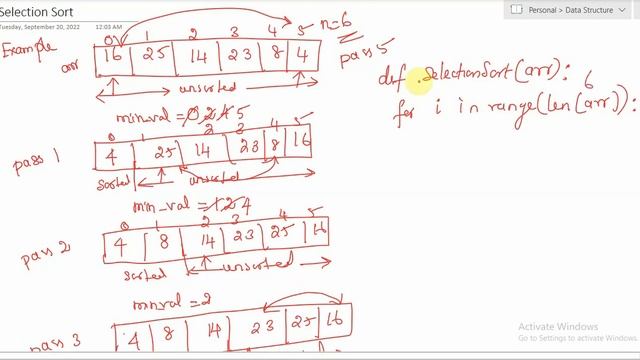 Selection Sort
Personal > Data Structure
Tuesday, September 20, 2022 12:03 AM
Example
0 1 2 3 4 5 n=6
arr 16 25 14 23 8 4
pass 5
unsorted
def selectionSort(arr):
6
for i in range(len(arr)):
min_val = 0 2 4 5
0 2 3 4 5
pass 1 4 25 14 23 8 16
sorted unsorted
min_val = 1 2 4
0 1 2 3 4 5
pass 2 4 8 14 23 25 16
sorted unsorted
min_val = 2
pass 3 4 8 14 23 25 16
Activate Windows
Go to Settings to activate Windows